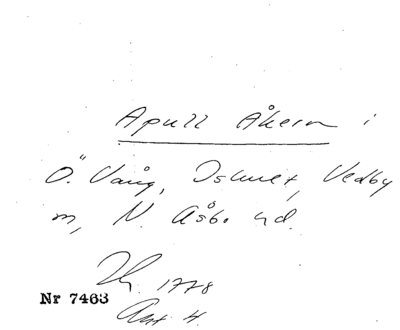 Apull Åkern i
Ö. Vång, Vedby
m, N. Åsbo hd.
1778
Nr 7463
Akt 4.